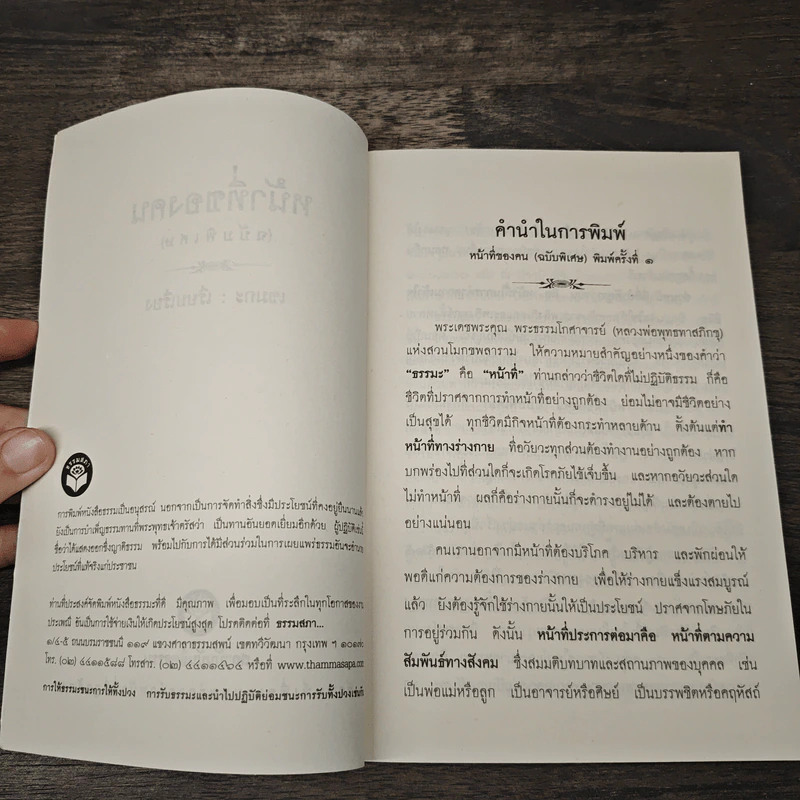 ธรรมสภา
การพิมพ์หนังสือธรรมเป็นอนุสรณ์ นอกจากเป็นการจัดทำสิ่งซึ่งมีประโยชน์ที่คงอยู่ยืนนานแล้ว
ยังเป็นการบำเพ็ญธรรมทานที่พระพุทธเจ้าตรัสว่า เป็นทานอันยอดเยี่ยมอีกด้วย ผู้ปฏิบัติเช่นนี้
ชื่อว่าได้แสดงออกซึ่งญาติธรรม พร้อมไปกับการได้มีส่วนร่วมในการเผยแพร่ธรรมอันจะอำนวย
ประโยชน์ที่แท้จริงแก่ประชาชน
ท่านที่ประสงค์จัดพิมพ์หนังสือธรรมะที่ดี มีคุณภาพ เพื่อมอบเป็นที่ระลึกในทุกโอกาสของงาน
ประเพณี อันเป็นการใช้จ่ายเงินให้เกิดประโยชน์สูงสุด โปรดติดต่อที่ ธรรมสภา...
๑/๔-๕ ถนนบรมราชชนนี ๑๑๙ แขวงศาลาธรรมสพน์ เขตทวีวัฒนา กรุงเทพ ฯ ๑๐๑๗๐
โทร. (๐๒) ๔๔๑๑๕๘๘ โทรสาร. (๐๒) ๔๔๑๑๔๖๔ หรือที่ www.thammasapa.com
การให้ธรรมะชนะการให้ทั้งปวง การรับธรรมะและนำไปปฏิบัติย่อมชนะการรับทั้งปวงเช่นกัน
คำนำในการพิมพ์
หน้าที่ของคน (ฉบับพิเศษ) พิมพ์ครั้งที่ ๑
พระเดชพระคุณ พระธรรมโกศาจารย์ (หลวงพ่อพุทธทาสภิกขุ)
แห่งสวนโมกขพลาราม ให้ความหมายสำคัญอย่างหนึ่งของคำว่า
“ธรรมะ” คือ “หน้าที่” ท่านกล่าวว่าชีวิตใดที่ไม่ปฏิบัติธรรม ก็คือ
ชีวิตที่ปราศจากการทำหน้าที่อย่างถูกต้อง ย่อมไม่อาจมีชีวิตอย่าง
เป็นสุขได้ ทุกชีวิตมีกิจหน้าที่ต้องกระทำหลายด้าน ตั้งต้นแต่ทำ
หน้าที่ทางร่างกาย ที่อวัยวะทุกส่วนต้องทำงานอย่างถูกต้อง หาก
บกพร่องไปที่ส่วนใดก็จะเกิดโรคภัยไข้เจ็บขึ้น และหากอวัยวะส่วนใด
ไม่ทำหน้าที่ ผลก็คือร่างกายนั้นก็จะดำรงอยู่ไม่ได้ และต้องตายไป
อย่างแน่นอน
คนเรานอกจากมีหน้าที่ต้องบริโภค บริหาร และพักผ่อนให้
พอดีแก่ความต้องการของร่างกาย เพื่อให้ร่างกายแข็งแรงสมบูรณ์
แล้ว ยังต้องรู้จักใช้ร่างกายนั้นให้เป็นประโยชน์ ปราศจากโทษภัยใน
การอยู่ร่วมกัน ดังนั้น หน้าที่ประการต่อมาคือ หน้าที่ตามความ
สัมพันธ์ทางสังคม ซึ่งสมมติบทบาทและสถานภาพของบุคคล เช่น
เป็นพ่อแม่หรือลูก เป็นอาจารย์หรือศิษย์ เป็นบรรพชิตหรือคฤหัสถ์